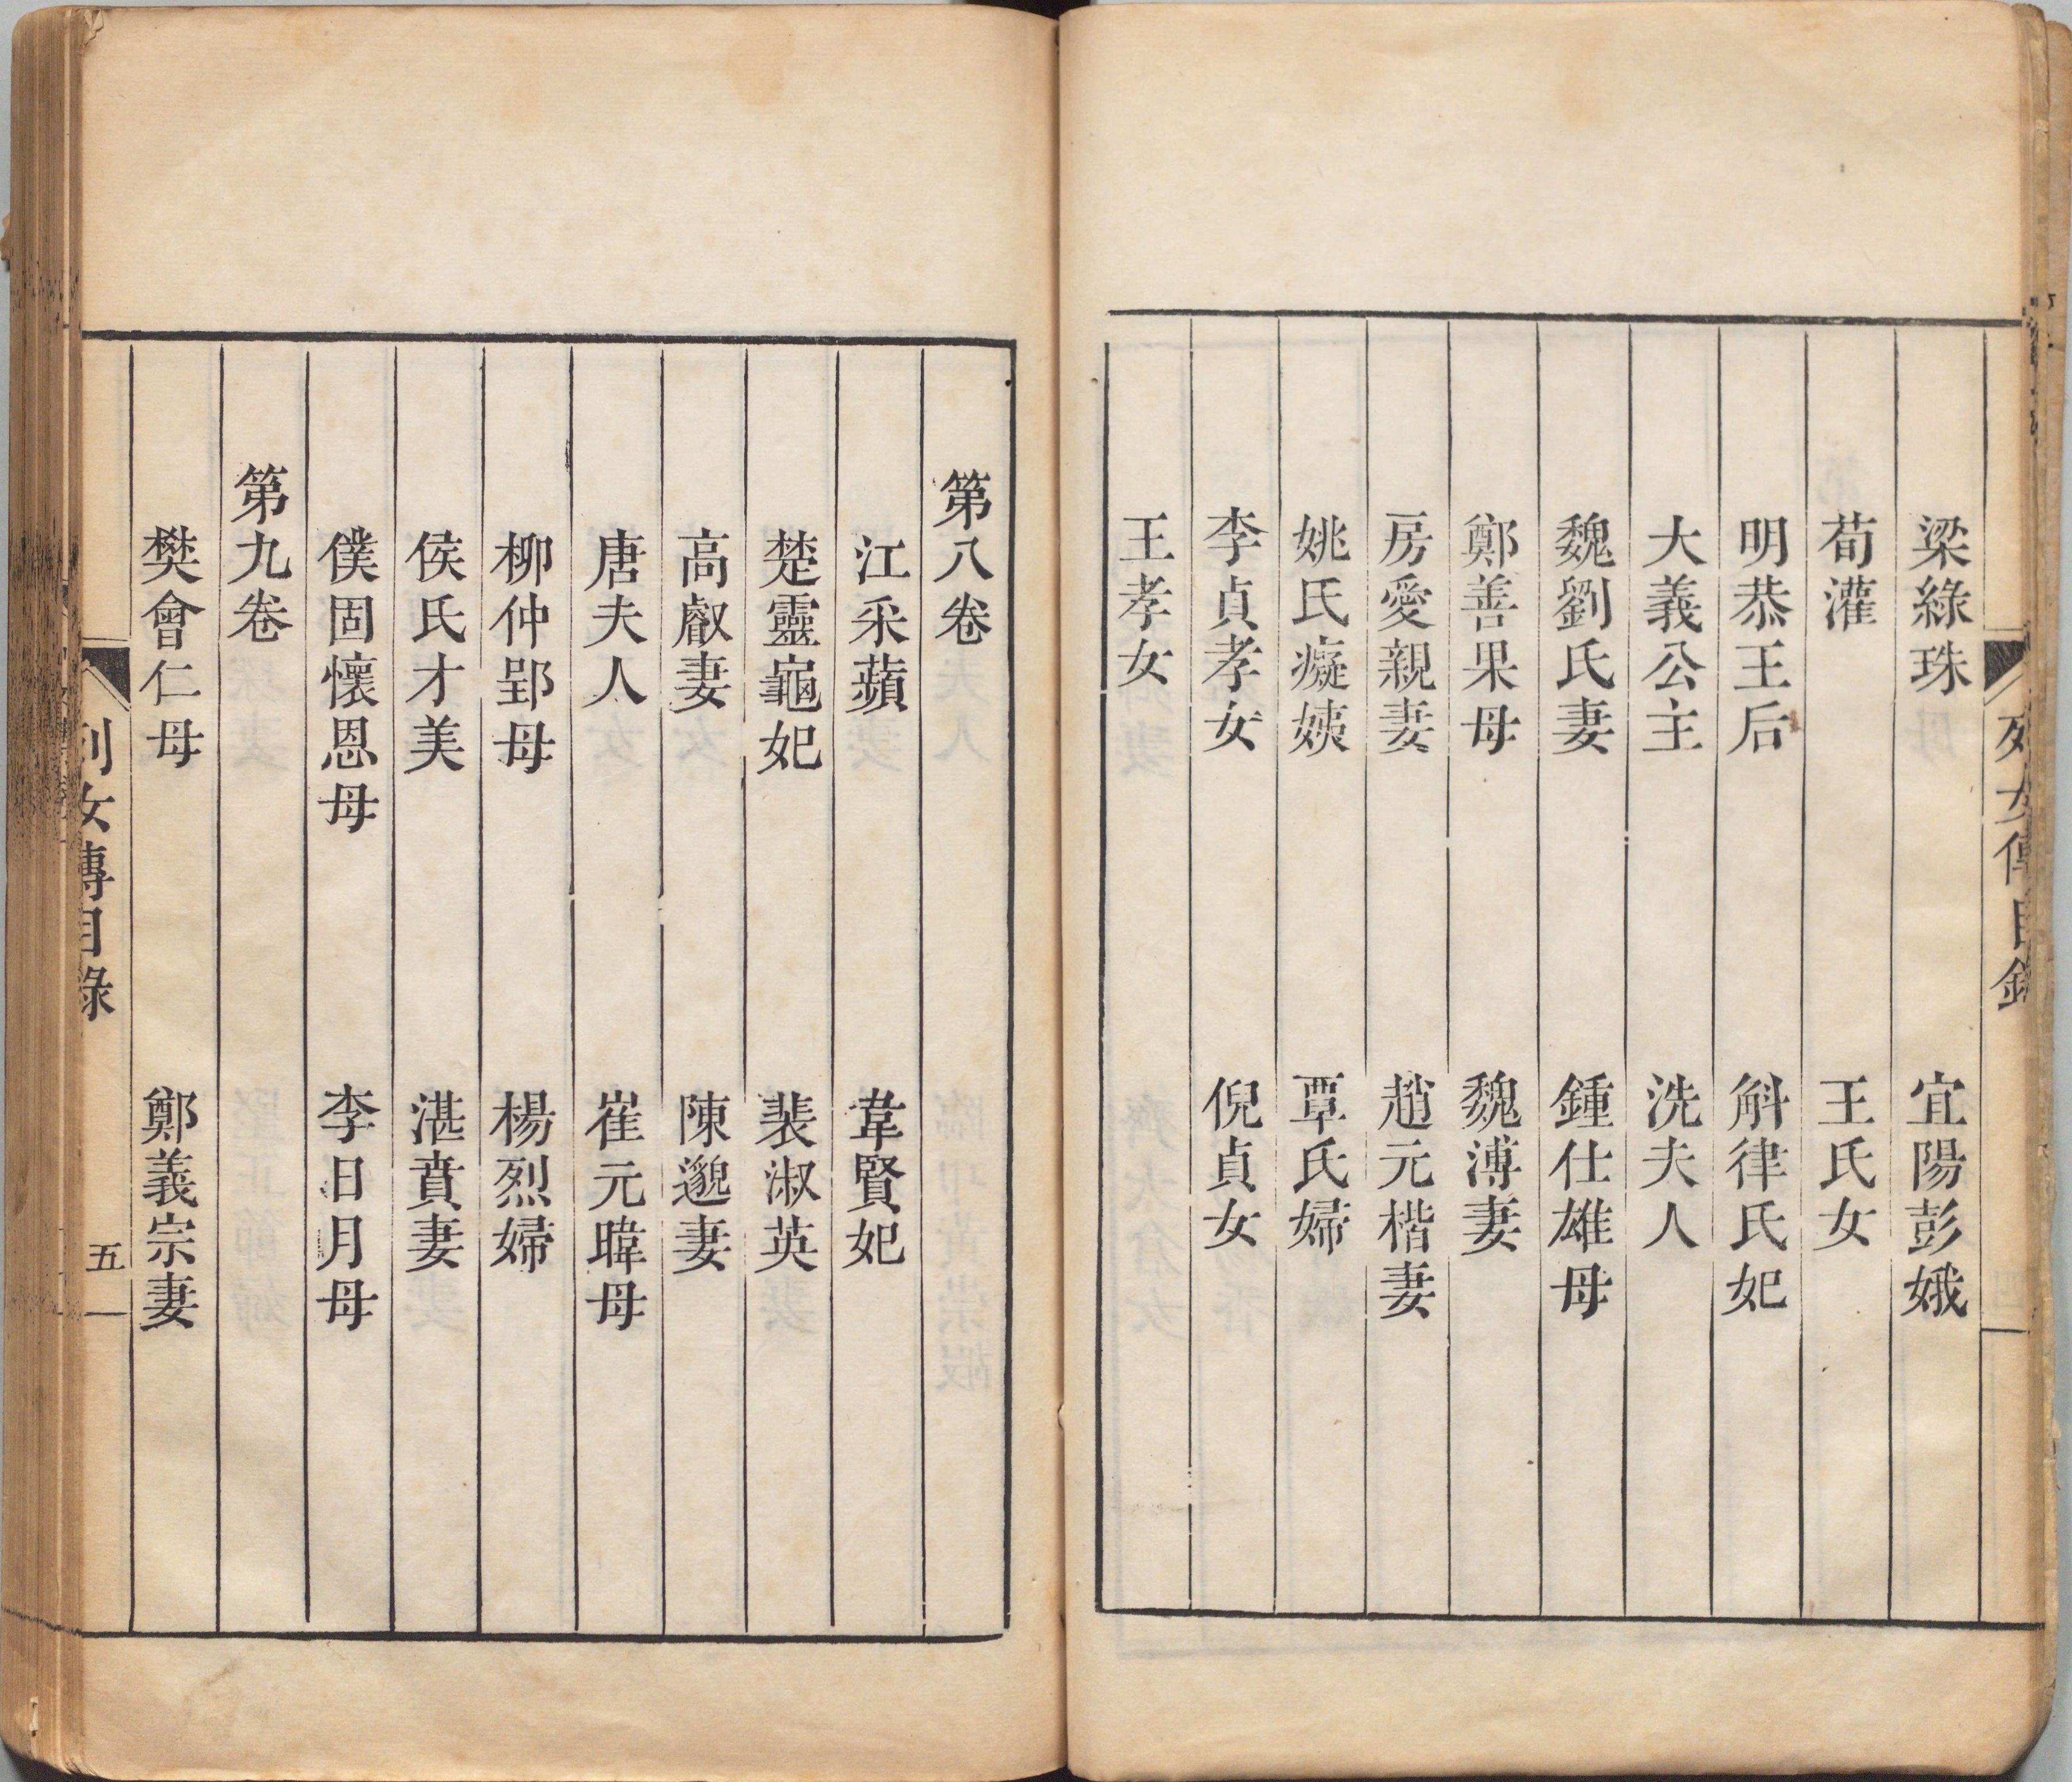 列女傳目錄
梁綠珠 宜陽彭娥
荀灌 王氏女
明恭王后 斛律氏妃
大義公主 洗夫人
魏劉氏妻 鍾仕雄母
鄭善果母 魏溥妻
房愛親妻 趙元楷妻
姚氏癡姨 覃氏婦
李貞孝女 倪貞女
王孝女
第八卷
江采蘋 韋賢妃
楚靈龜妃 裴淑英
高叡妻 陳邈妻
唐夫人 崔元暐母
柳仲郢母 楊烈婦
侯氏才美 湛賁妻
僕固懷恩母 李日月母
第九卷
樊會仁母 鄭義宗妻
列女傳目錄 五